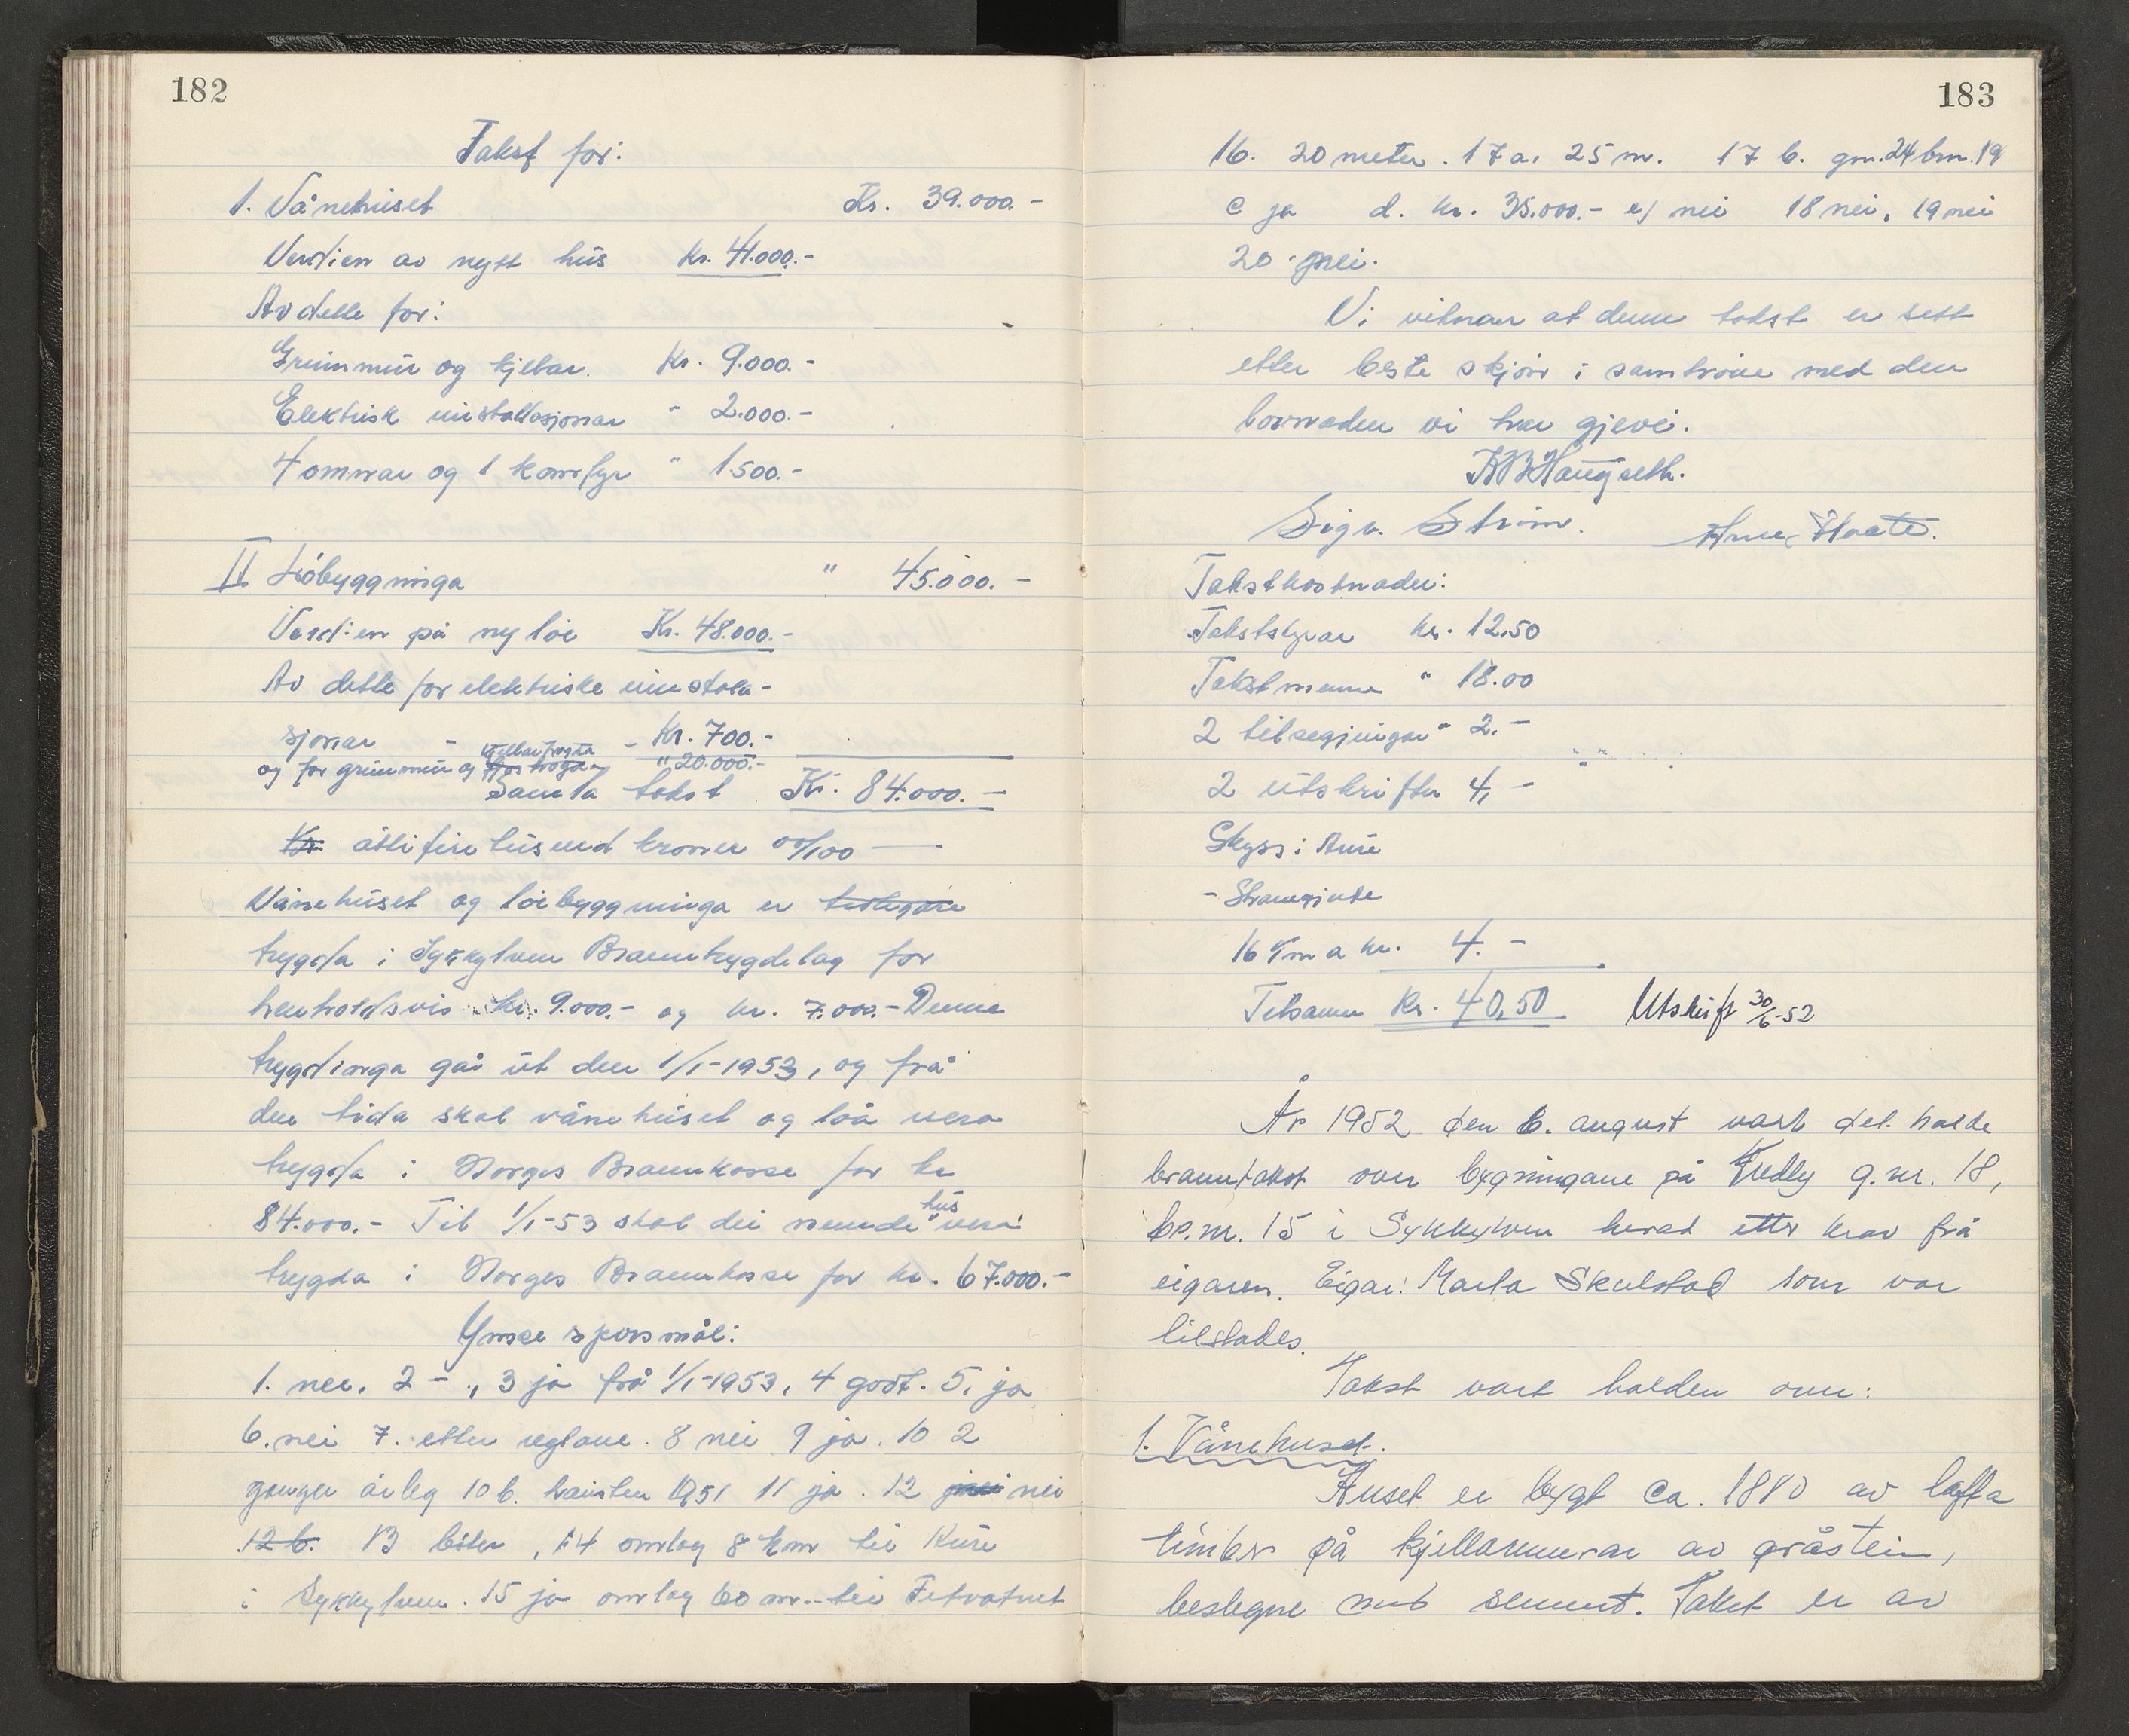 182
Takst for:
1. Vånehuset Kr. 39.000.-
Verdien av nytt hus kr. 41.000.-
Av dette for:
Grunnmur og kjellar. Kr. 9.000.-
Elektrisk installasjonar " 2.000.-
4 omnar og 1 komfyr " 1500.-
II Löbyggninga " 45.000.-
Verdien på ny löe Kr. 48.000.-
Av dette for elektriske innstala-
sjonar - - Kr. 700.-
kjellartrygta
og for grunnmur og " 20.000.-
Samla takst Kr. 84.000.-
Kr åttifire tusund kroner 00/100
Vånehuset og löebyggninga er tidlegare
trygda i Sykkylven Branntrygdelag for
henholdsvis kr. 9.000.- og kr. 7.000.- Denne
trygdinga går ut den 1/1-1953, og frå
den tida skal vånehuset og löa vera
trygda i Norges Brannkasse for kr
84.000.- Til 1/1-53 skal dei nemnde hus vera
trygda i Norges Brannkasse for kr. 67.000.-
Ymse spørsmål:
1. nei. 2 - ., 3 ja frå 1/1-1953, 4 godt. 5, ja
6. nei 7. etter reglane. 8 nei 9 ja. 10 2
gonger årleg 10 b. hausten 1951 11 ja. 12 nei
12 b. 13 bilar, 14 omlag 8 km til Aure
i Sykkylven. 15 ja omlag 60 m.. til Fitvatnet
183
16. 20 meter. 17 a. 25 m. 17 b. gm. 24 bm. 19
c ja d. kr. 35.000.- e/ nei 18 nei, 19 nei
20 nei.
Vi vitnar at denne takst er sett
etter beste skjön i samhöve med den
lovnaden vi har gjeve.
KB Haugseth.
Sigv. Ström.
Takstkostnader:
Takststyrar kr. 12.50
Takstmenn " 18.00
2 tilsegjingar " 2.-
2 utskrifter 4,-
Skyss: Aure
- Straumgjerde
16 km a kr. 4.-
Tilsamen Kr. 40,50 Utskrift 30/6-52
År 1952 den 6. august vart det halde
branntakst over bygningane på Hedly g.nr. 18,
br.nr. 15 i Sykkylven herad etter krav frå
eigaren. Eigar: Marta Skulstad som var
tilstades.
Takst vart halden over:
1. Vånehuset.
Huset er bygt ca. 1880 av lafta
timber på kjellarmurar av gråstein,
beslegne med sement. Taket er av